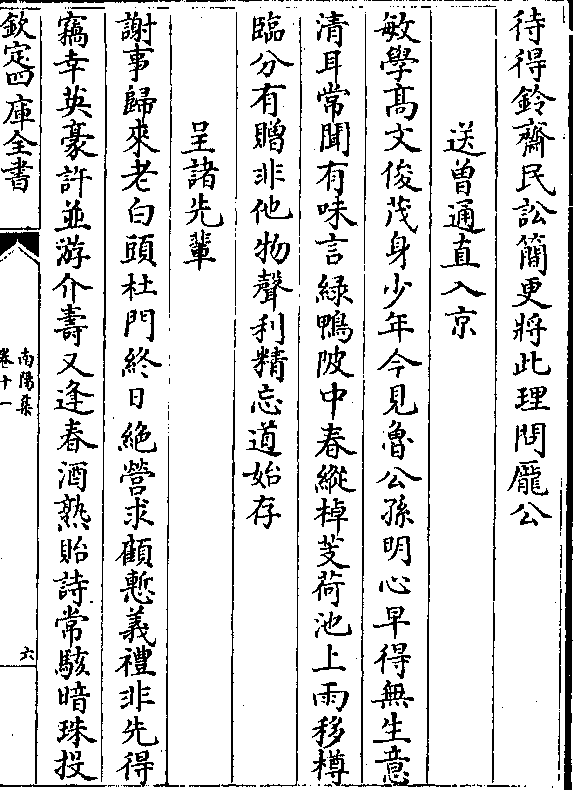 待得鈴齋民訟簡更將此理問龎公
送曽通直入京
敏學髙文俊茂身少年今見魯公孫明心早得無生意
清耳常聞有味言緑鴨陂中春縱棹芰荷池上雨移樽
臨分有贈非他物聲利精忘道始存
呈諸先輩
謝事歸來老白頭杜門終日絶營求顧慙義禮非先得
竊幸英豪許並游介壽又逢春酒熟貽詩常駭暗珠投
欽定四庫全書
南陽集
卷十一
六